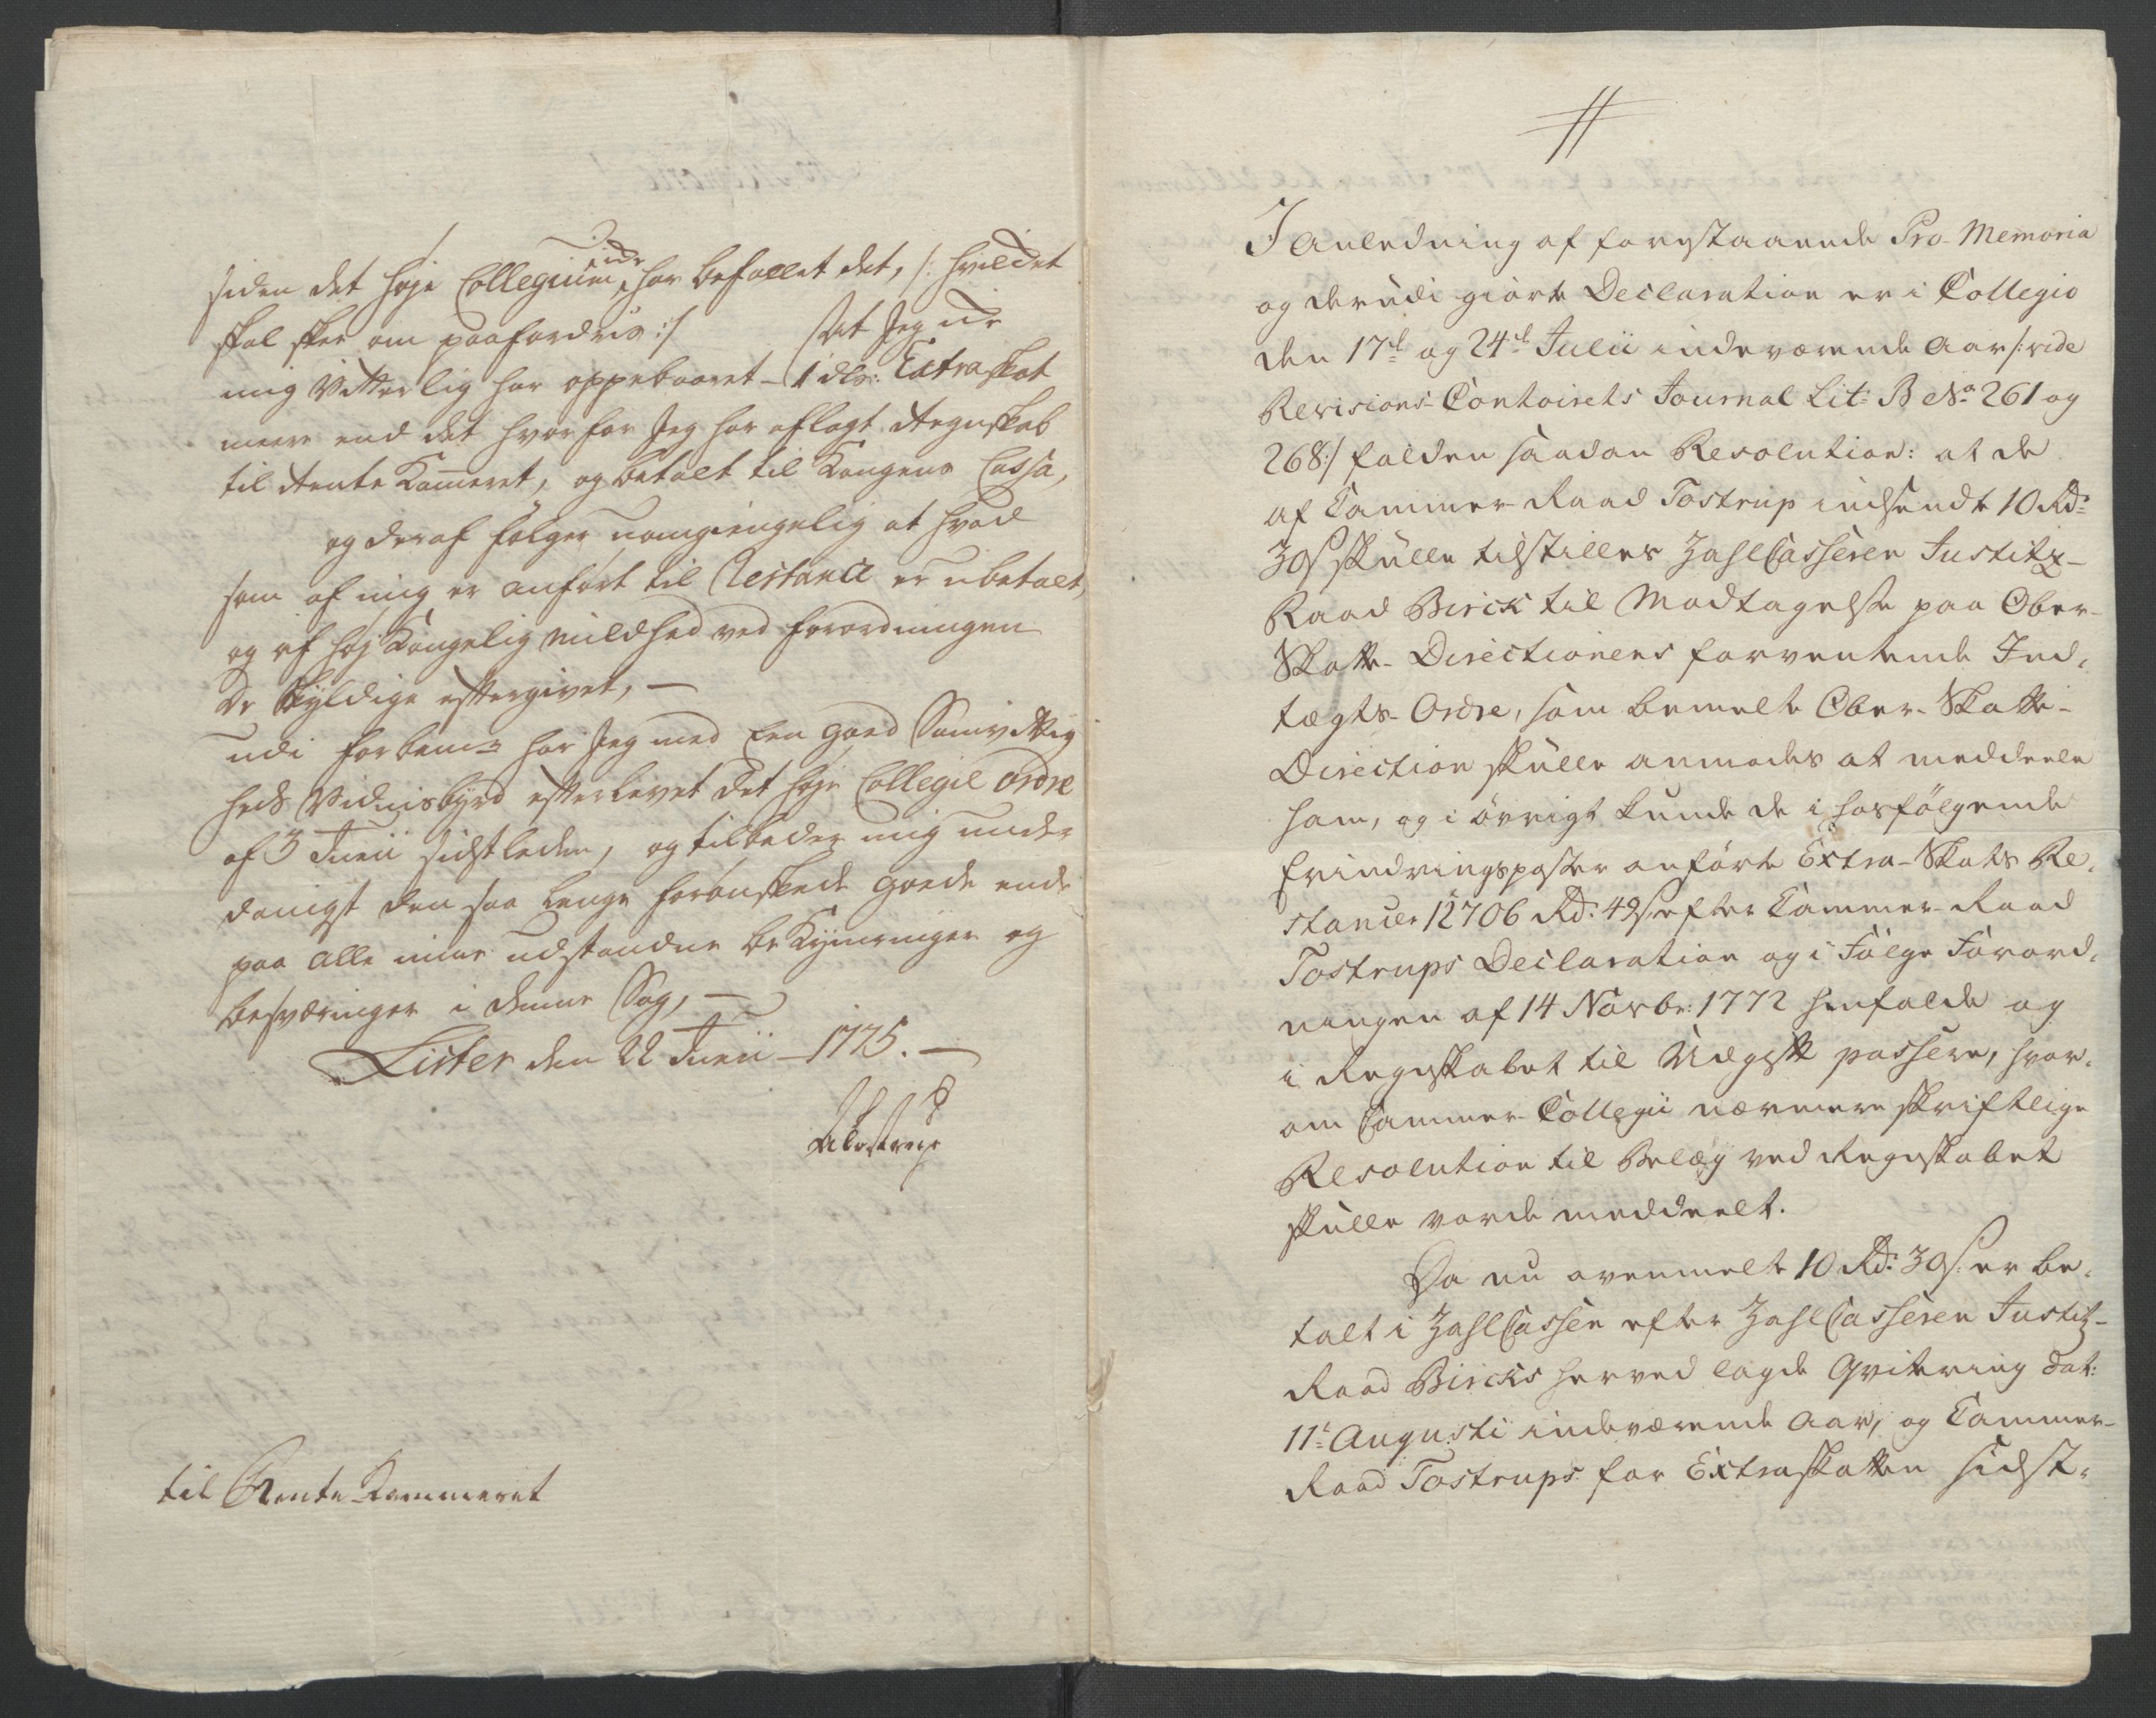 siden det høje Collegium ikke har befallet det, /: hvilcket
skal skee om paafordris :/ At Jeg icke
mig Vitterlig har oppebaaret 1 dlr: Extraskat
meere end det hvorfor Jeg har aflagt Regnskab
til Rente Kameret, og betalt til Kongens Cassa,
og deraf følger uomgiengelig at hvad
som af mig er anført til Restance er ubetalt,
og af høj Kongelig mildhed ved forordningen
de skyldige eftergivet, —
udi forbem:te har Jeg med Een goed Samvittig
heds Vidnisbyrd efterlevet det høje Collegii ordre
af 3 Junii sidstleden, og tilbeder mig under
danigst den saa lenge forønskede goede ende
paa alle mine udstandne bekymringer og
besværinger i denne Sag, —
Lister den 22 Junii 1775. —
Tostrup
til Rente Kammeret
I Anledning af forestaaende Pro Memoria
og derudi giorte Declaration er i Collegio
den 17de og 24de Julii indeværende Aar /: vide
Revisions-Contoirets Journal Lit: B No 261 og
268 :/ falden saadan Resolution: at de
af Cammer-Raad Tostrup indsendte 10 Rd:
30 s skulle tilstilles ZahlCasseren Justitz-
Raad Birck til Modtagelse paa Ober-
Skatte-Directionens forventende Ind-
tægts-Ordre, som bemelte Ober-Skatte-
Direction skulle anmodes at meddeele
ham, og i øvrigt kunde de i hosfølgende
Erindringsposter anførte Extra-Skats Re-
stancer 12706 Rd: 49 s. efter Cammer-Raad
Tostrups Declaration og i Følge Forord-
ningen af 14 Novbr: 1772 henfalde og
i Regnskabet til Udgift passere, hvor-
om Cammer-Collegii nærmere skriftlige
Resolution til Belæg ved Regnskabet
skulle vorde meddeelt.
Da nu ovenmelte 10 Rd: 30 s: er be-
talt i ZahlCassen efter ZahlCasseren Justitz-
Raad Bircks herved lagde Qvitering dat:
11te Augusti indeværende Aar, og Cammer-
Raad Tostrups for Extraskatten sidst-